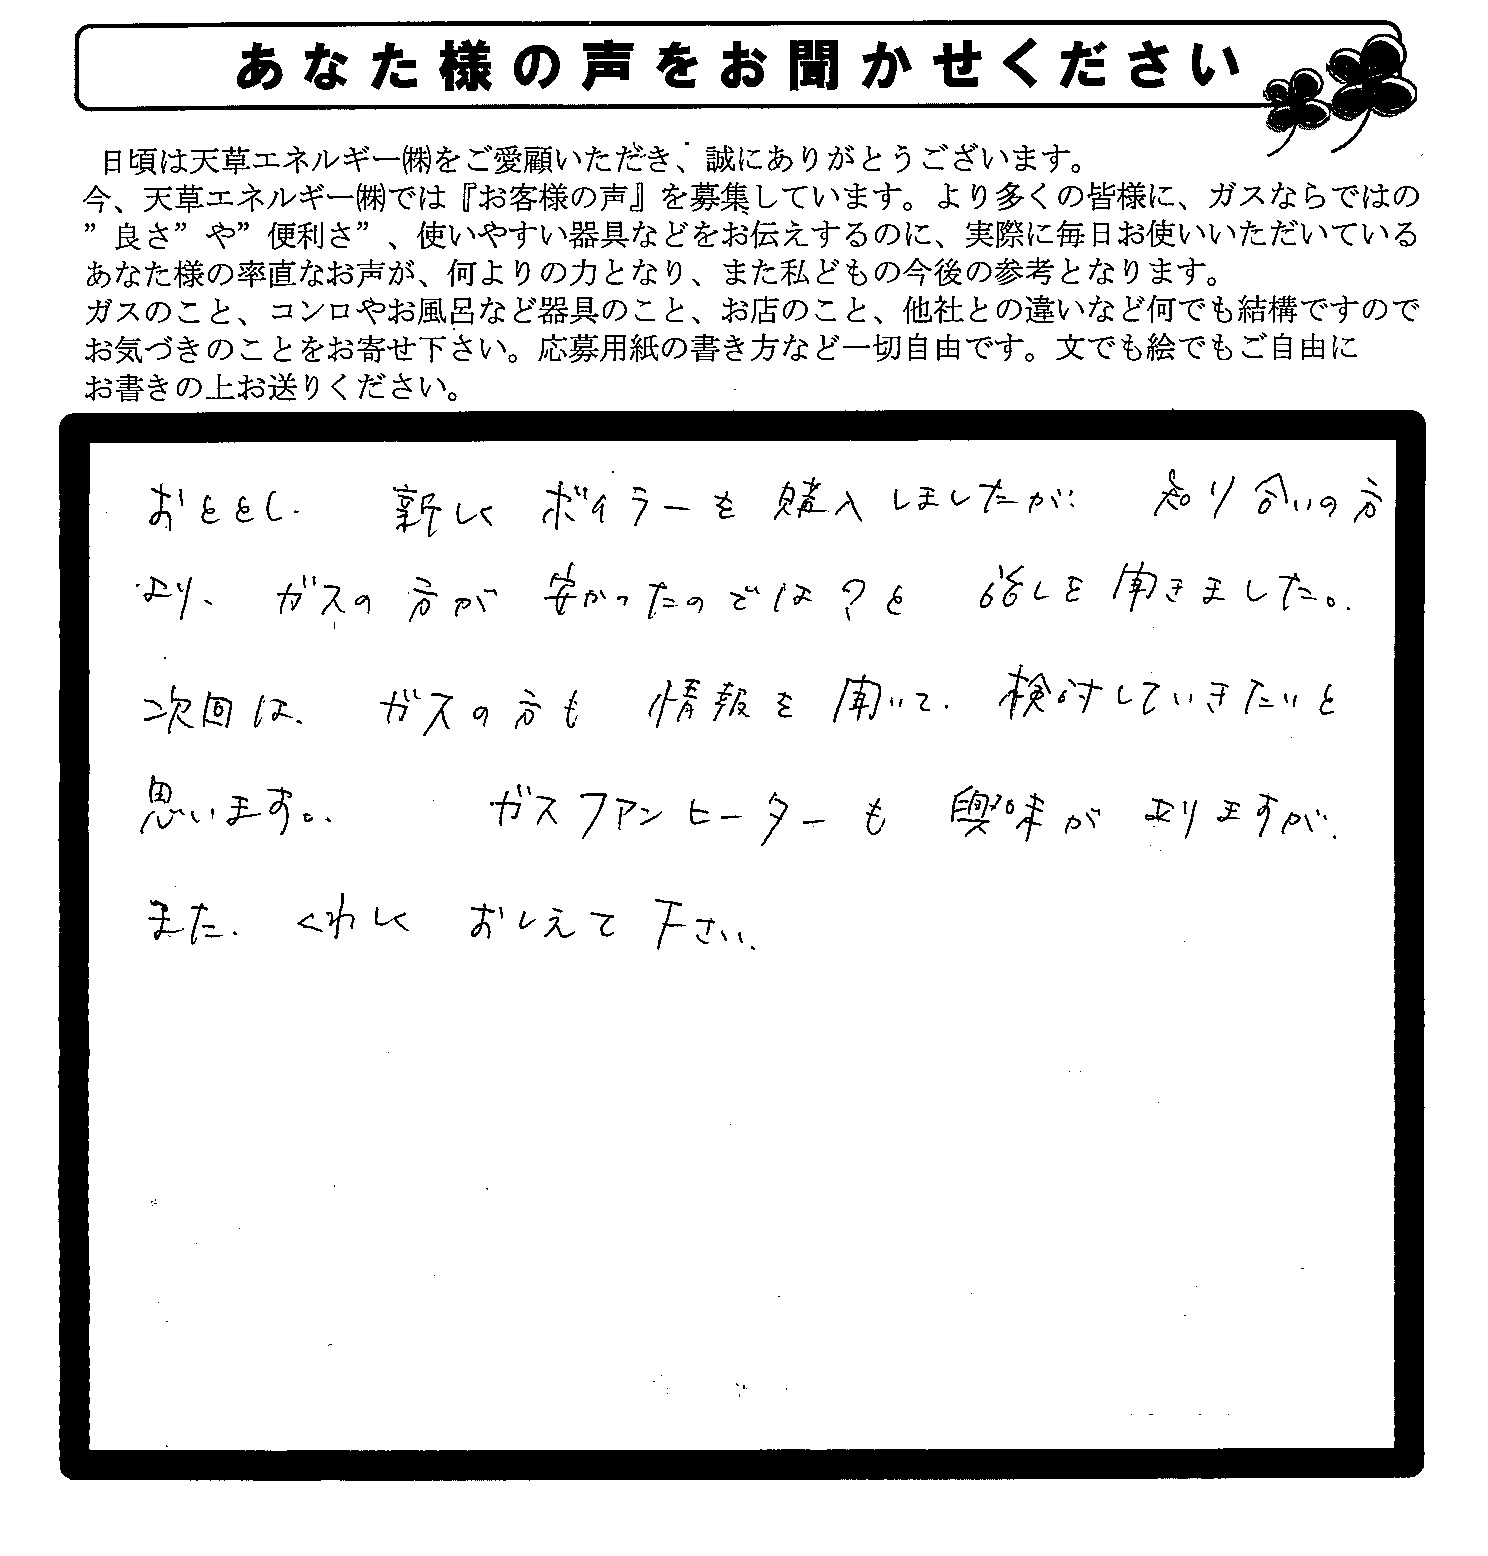 あなた様の声をお聞かせください
日頃は天草エネルギー㈱をご愛顧いただき、誠にありがとうございます。
今、天草エネルギー㈱では『お客様の声』を募集しています。より多くの皆様に、ガスならではの
”良さ”や”便利さ”、使いやすい器具などをお伝えするのに、実際に毎日お使いいただいている
あなた様の率直なお声が、何よりの力となり、また私どもの今後の参考となります。
ガスのこと、コンロやお風呂など器具のこと、お店のこと、他社との違いなど何でも結構ですので
お気づきのことをお寄せ下さい。応募用紙の書き方など一切自由です。文でも絵でもご自由に
お書きの上お送りください。
おととし、新しくボイラーを購入しましたが、知り合いの方
より、ガスの方が安かったのでは?と話しを聞きました。
次回は、ガスの方も情報を聞いて、検討していきたいと
思います。ガスファンヒーターも興味がよりますが、
また、くわしくおしえて下さい、